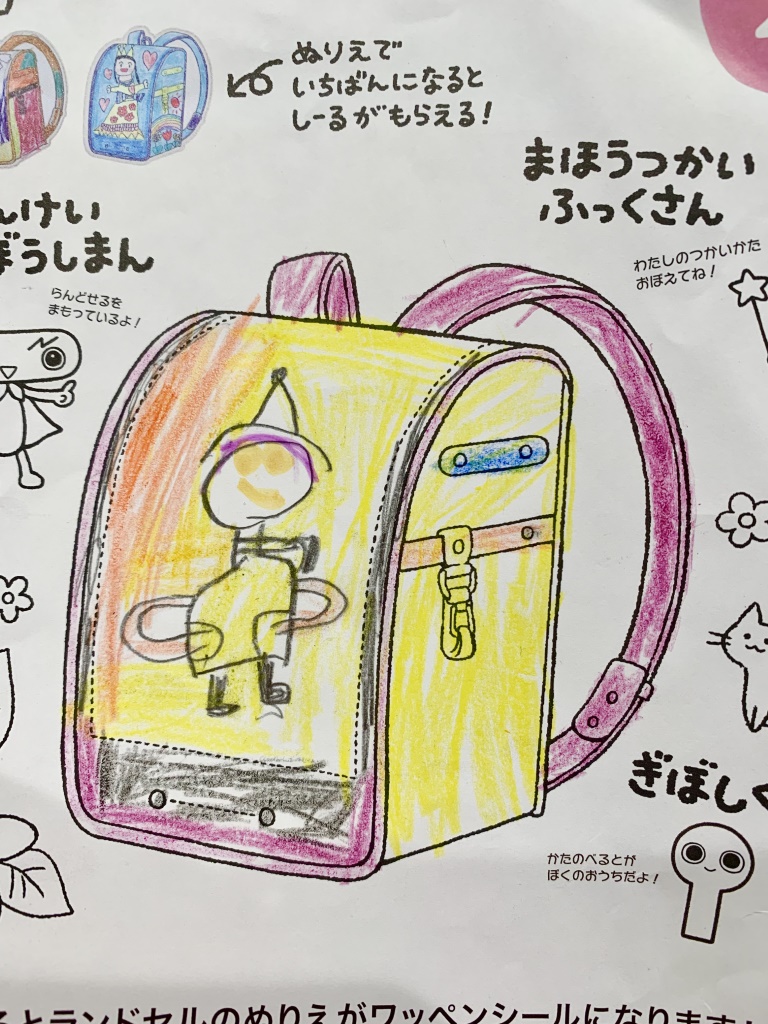 ぬりえで
いちばんになると
しーるがもらえる!
まほうつかい
ふっくさん
わたしのつかいかた
おぼえてね!
んけい
ぼうしまん
らんどせるを
まもっているよ!
ぎぼし
かたのべるとが
ぼくのおうちだよ!
とランドセルのぬりえがワッペンシールになります